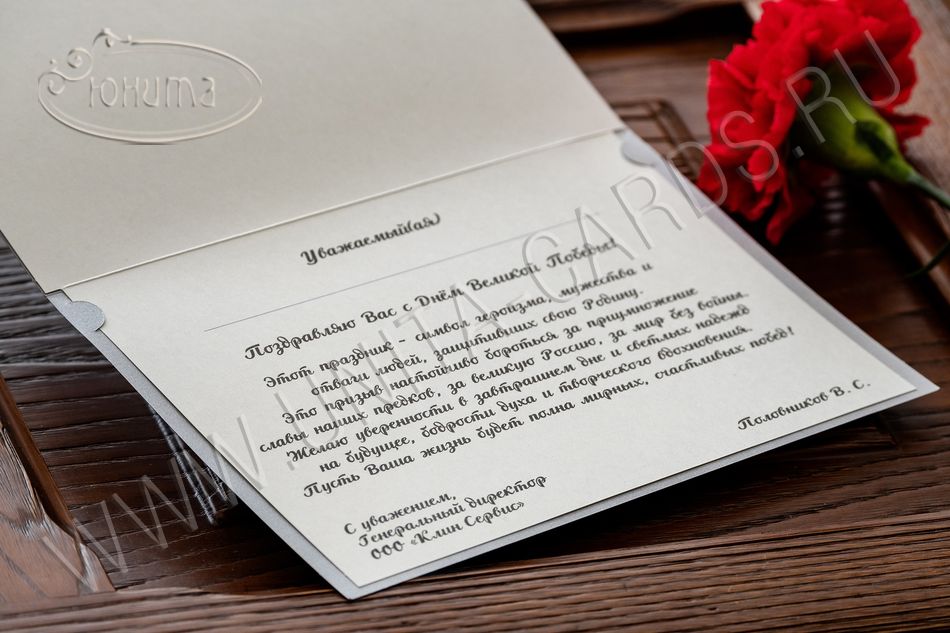 Юнита
Уважаемый(ая)
Поздравляю Вас с Днём Великой Победы!
Этот праздник - символ героизма, мужества и
отваги людей, защитивших свою Родину.
Это призыв настойчиво бороться за приумножение
славы наших предков, за великую Россию, за мир без войны.
Желаю уверенности в завтрашнем дне и светлых надежд
на будущее, бодрости духа и творческого вдохновения.
Пусть Ваша жизнь будет полна мирных, счастливых побед!
С уважением,
Генеральный директор
ООО «Клин Сервис»
Половников В. С.
WWW.UNITA-CARDS.RU